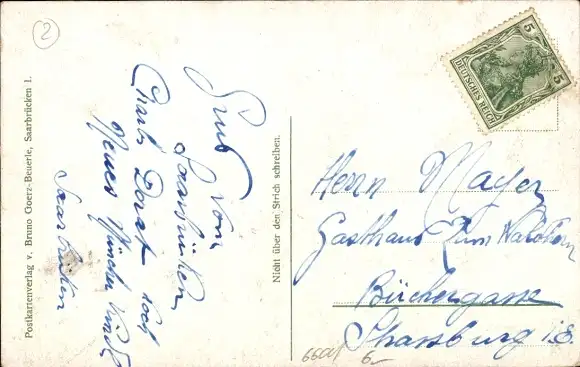 2
Postkartenverlag v. Bruno Goerz-Beuerle, Saarbrücken 1.
Gruß vom
Saarbrücken
Charls
Neues
Saarbrücken
Nicht über den Strich schreiben.
5 5
DEUTSCHES REICH
Herrn Mayer
Gasthaus Zum
Büchergasse
Strassburg i. E.
6-